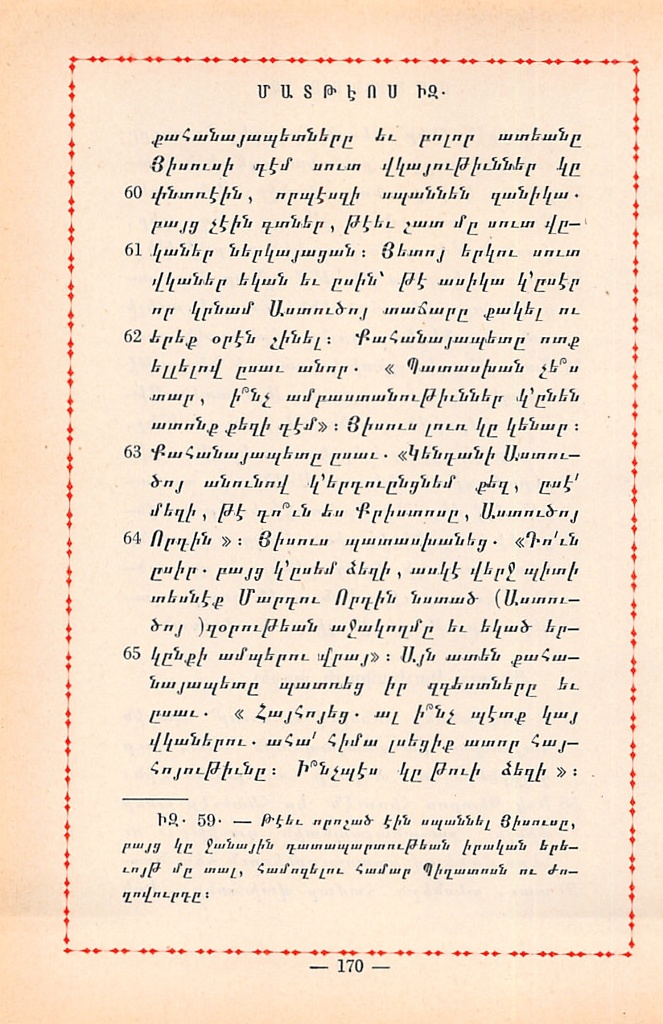 ՄԱՏԹԷՈՍ ԻԶ.
քահանայապետները եւ բոլոր ատեանը
Յիսուսի դէմ սուտ վկայութիւններ կը
60 փնտռէին, որպէսզի սպաննեն զանիկա.
բայց չէին գտներ, թէեւ շատ մը սուտ վը—
61 կաներ ներկայացան: Յետոյ երկու սուտ
վկաներ եկան եւ ըսին՝ թէ ասիկա կ՚ըսէր
որ կրնամ Աստուծոյ տաճարը քակել ու
62 երեք օրէն շինել: Քահանայապետը ոտք
ելլելով ըսաւ անոր. « Պատասխան չե՞ս
տար, ի՞նչ ամբաստանութիւններ կ՚ընեն
ատոնք քեզի դէմ»: Յիսուս լուռ կը կենար:
63 Քահանայապետը ըսաւ. «Կենդանի Աստու—
ծոյ անունով կ՚երդուընցնեմ քեզ, ըսէ՛
մեզի, թէ դո՞ւն ես Քրիստոսը, Աստուծոյ
64 Որդին »: Յիսուս պատասխանեց. «Դո՛ւն
ըսիր. բայց կ՚ըսեմ ձեզի, ասկէ վերջ պիտի
տեսնէք Մարդու Որդին նստած (Աստու—
ծոյ )զօրութեան աջակողմը եւ եկած եր—
65 կընքի ամպերու վրայ»: Այն ատեն քահա—
նայապետը պատռեց իր զգեստները եւ
ըսաւ. « Հայհոյեց. ալ ի՞նչ պէտք կայ
վկաներու. ահա՛ հիմա լսեցիք ատոր հայ—
հոյութիւնը: Ի՞նչպէս կը թուի ձեզի »:
ԻԶ. 59. — Թէեւ որոշած էին սպաննել Յիսուսը,
բայց կը ջանային դատապարտութեան իրական երե—
ւոյթ մը տալ, համոզելու համար Պիղատոսն ու ժո—
ղովուրդը:
— 170 —